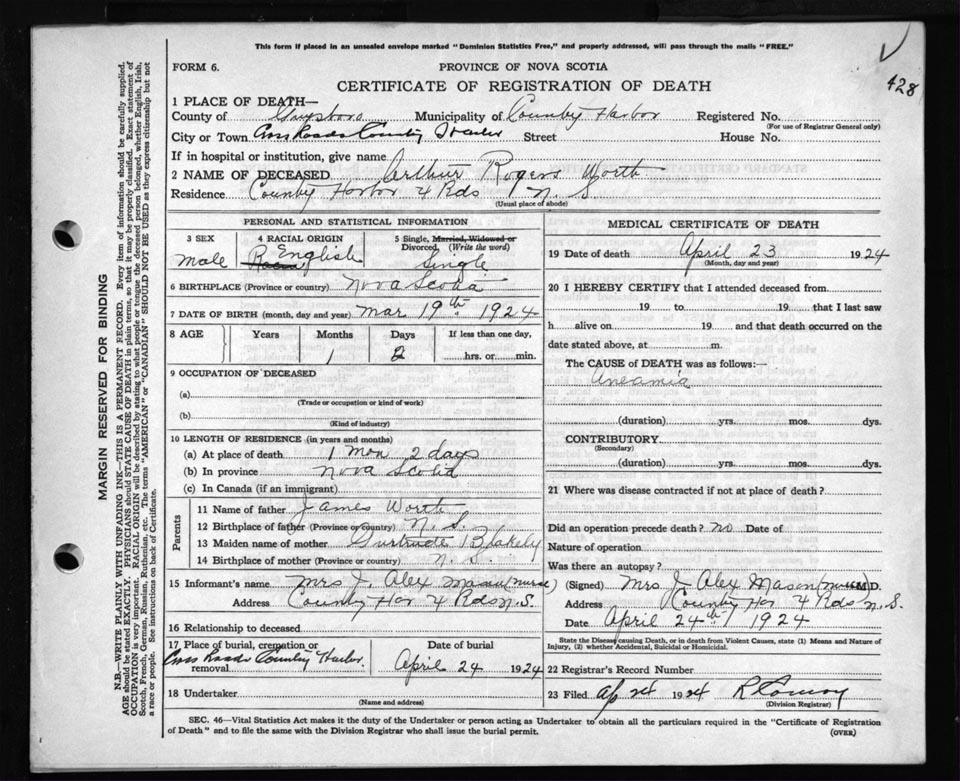 This form if placed in an unsealed envelope marked "Dominion Statistics Free," and properly addressed, will pass through the mails "FREE."
428
FORM 6.
PROVINCE OF NOVA SCOTIA
CERTIFICATE OF REGISTRATION OF DEATH
1 PLACE OF DEATH—
County of Guysboro Municipality of Country Harbor Registered No.
(For use of Registrar General only)
City or Town Cross Roads Country Harbor Street House No.
If in hospital or institution, give name
2 NAME OF DECEASED Arthur Rogers Worth
Residence County Harbor 4 Rds N. S.
(Usual place of abode)
PERSONAL AND STATISTICAL INFORMATION
3 SEX
male
4 RACIAL ORIGIN
English
5 Single, Married, Widowed or Divorced, (Write the word)
Single
6 BIRTHPLACE (Province or country) Nova Scotia
7 DATE OF BIRTH (month, day and year) Mar 19th 1924
8 AGE Years Months Days If less than one day,
1 2 hrs. or min.
9 OCCUPATION OF DECEASED
(a)
(Trade or occupation or kind of work)
(b)
(Kind of industry)
10 LENGTH OF RESIDENCE (in years and months)
(a) At place of death 1 mon 2 days
(b) In province Nova Scotia
(c) In Canada (if an immigrant)
Parents
11 Name of father James Worth
12 Birthplace of father (Province or country) N. S.
13 Maiden name of mother Gurtrude Blakely
14 Birthplace of mother (Province or country) N. S.
15 Informant's name Mrs J. Alex Mason (nurse)
Address County Har 4 Rds N. S.
16 Relationship to deceased
17 Place of burial, cremation or removal
Cross Roads Country Harbor
Date of burial
April 24 1924
18 Undertaker
(Name and address)
MEDICAL CERTIFICATE OF DEATH
19 Date of death April 23 1924
(Month, day and year)
20 I HEREBY CERTIFY that I attended deceased from
19 to 19 that I last saw
h alive on 19 and that death occurred on the
date stated above, at m.
The CAUSE of DEATH was as follows:—
Aneamia
(duration) yrs. mos. dys.
CONTRIBUTORY
(Secondary)
(duration) yrs. mos. dys.
21 Where was disease contracted if not at place of death?
Did an operation precede death? no Date of
Nature of operation
Was there an autopsy?
(Signed) Mrs J Alex Mason (nurse) M.D.
Address County Har 4 Rds N. S.
Date April 24th 1924
State the Disease causing Death, or in death from Violent Causes, state (1) Means and Nature of Injury, (2) whether Accidental, Suicidal or Homicidal.
22 Registrar's Record Number
23 Filed Ap 24 1924
(Division Registrar)
SEC. 46—Vital Statistics Act makes it the duty of the Undertaker or person acting as Undertaker to obtain all the particulars required in the "Certificate of Registration
of Death" and to file the same with the Division Registrar who shall issue the burial permit.
(OVER)
MARGIN RESERVED FOR BINDING
N.B.—WRITE PLAINLY WITH UNFADING INK—THIS IS A PERMANENT RECORD. Every item of information should be carefully supplied.
AGE should be stated EXACTLY. PHYSICIANS should STATE CAUSE OF DEATH in plain terms, so that it may be properly classified. Exact statement of
OCCUPATION is very important. RACIAL ORIGIN will be described by stating to what people or tongue the deceased person belonged, whether English, Irish,
Scotch, French, German, Russian, Ruthenian, etc. The terms "AMERICAN" or "CANADIAN" SHOULD NOT BE USED as they express citizenship but not
a race or people. See instructions on back of Certificate.